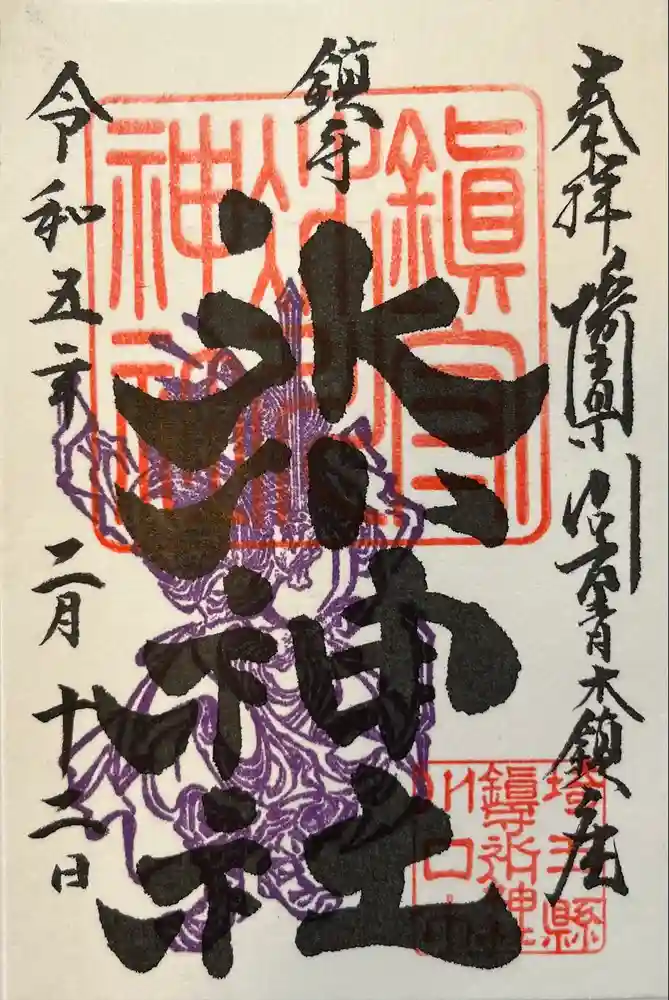 奉拝 埼玉県川口市青木鎮座
鎮守
氷川神社
令和五年 二月 十二日
鎮守
氷川
神社
埼玉縣
鎮守氷川神社
川口市